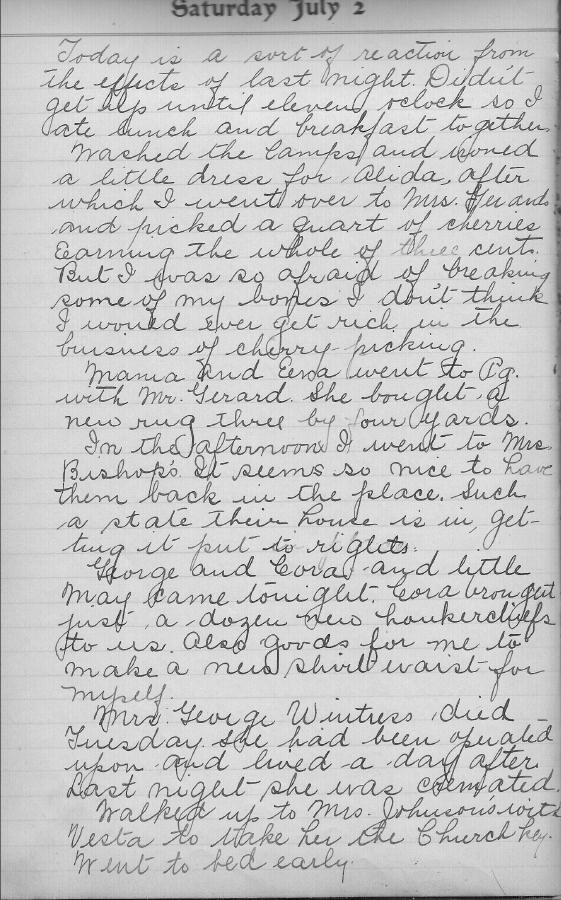 Saturday July 2
Today is a sort of reaction from
the effects of last night. Didn't
get up until eleven oclock so I
ate lunch and breakfast together.
Washed the lamps and ironed
a little dress for Alida, after
which I went over to Mrs.
and picked a quart of cherries
Earning the whole of three cents.
But I was so afraid of breaking
some of my bones I don't think
I would ever get rich in the
buisness of cherry picking.
Mama and Eena went to Pg.
with Mr. Gerard. She bought a
new rug three by four yards.
In the afternoon I went to Mrs.
Bishop's. It seems so nice to have
them back in the place. Such
a state their house is in, get-
ting it put to rights.
George and Cora and little
May came tonight. Cora brought
just a dozen new hankerchiefs
to us. Also goods for me to
make a new shirt waist for
myself.
Mrs. George Wintress died
Tuesday. She had been operated
upon and lived a day after.
Last night she was cremated.
Walked up to Mrs. Johnson's with
Vesta to take her the Church key.
Went to bed early.